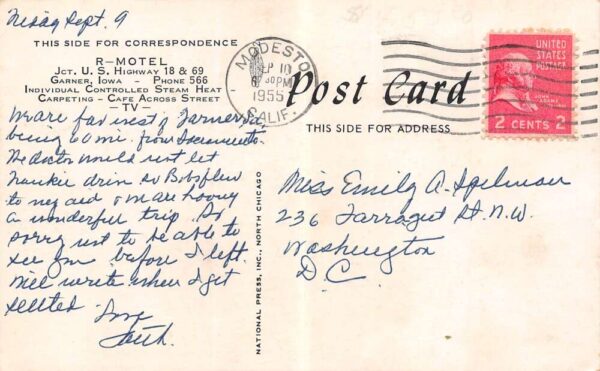 Sept. 9
THIS SIDE FOR CORRESPONDENCE
R-MOTEL
JCT. U. S. HIGHWAY 18 & 69
GARNER, IOWA - PHONE 566
INDIVIDUAL CONTROLLED STEAM HEAT
CARPETING - CAFE ACROSS STREET
- TV -
We are far west of
being 60 mi. from Sacramento.
The doctor would not let
Frankie drive so Bob flew
to my aid & we are having
a wonderful trip. So
sorry not to be able to
see you before I left.
Will write when I get
settled. Love
NATIONAL PRESS, INC., NORTH CHICAGO
MODESTO
SEP 10
PM
1955
CALIF.
Post Card
THIS SIDE FOR ADDRESS
UNITED
STATES
POSTAGE
JOHN
ADAMS
2 CENTS 2
Miss Emily A. Spilman
236 Farragut St. N.W.
Washington
D.C.